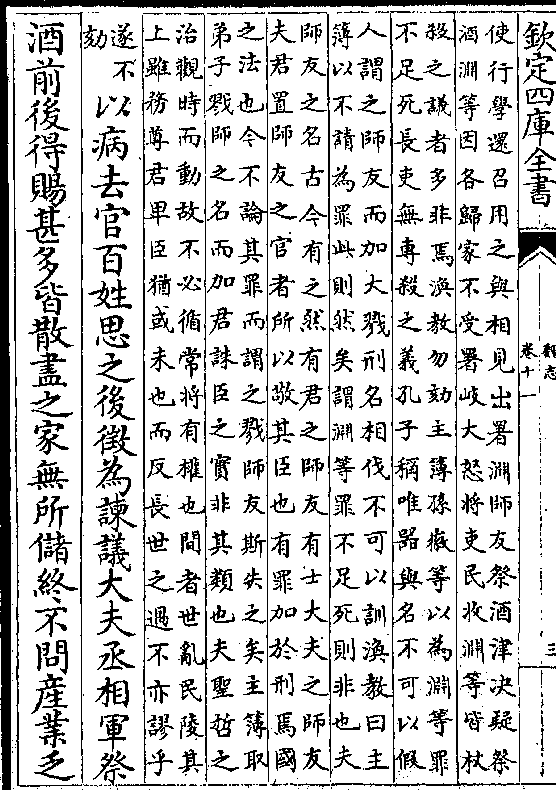 欽定四庫全書
魏志
卷十一
三
使行學還召用之與相見出署淵師友祭酒津決疑祭
酒淵等因各歸家不受署岐大怒將吏民收淵等皆杖
殺之議者多非焉渙教勿劾主簿孫徽等以為淵等罪
不足死長吏無專殺之義孔子稱唯器與名不可以假
人謂之師友而加大戮刑名相伐不可以訓渙教曰主
簿以不請為罪此則然矣謂淵等罪不足死則非也夫
師友之名古今有之然有君之師友有士大夫之師友
夫君置師友之官者所以敬其臣也有罪加於刑焉國
之法也今不論其罪而謂之戮師友斯失之矣主簿取
弟子戮師之名而加君誅臣之實非其類也夫聖哲之
治觀時而動故不必循常將有權也間者世亂民陵其
上雖務尊君卑臣猶或未也而反長世之過不亦謬乎
遂不
劾
以病去官百姓思之後徵為諫議大夫丞相軍祭
酒前後得賜甚多皆散盡之家無所儲終不問産業乏